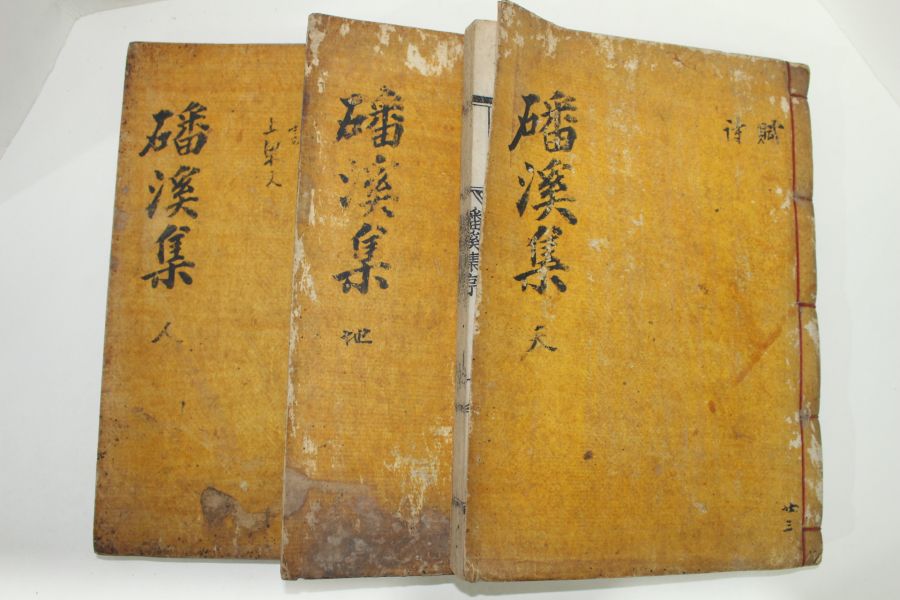 磻溪集
天
賦
詩
共三
磻溪集序
磻溪集
地
磻溪集
人
上梁文